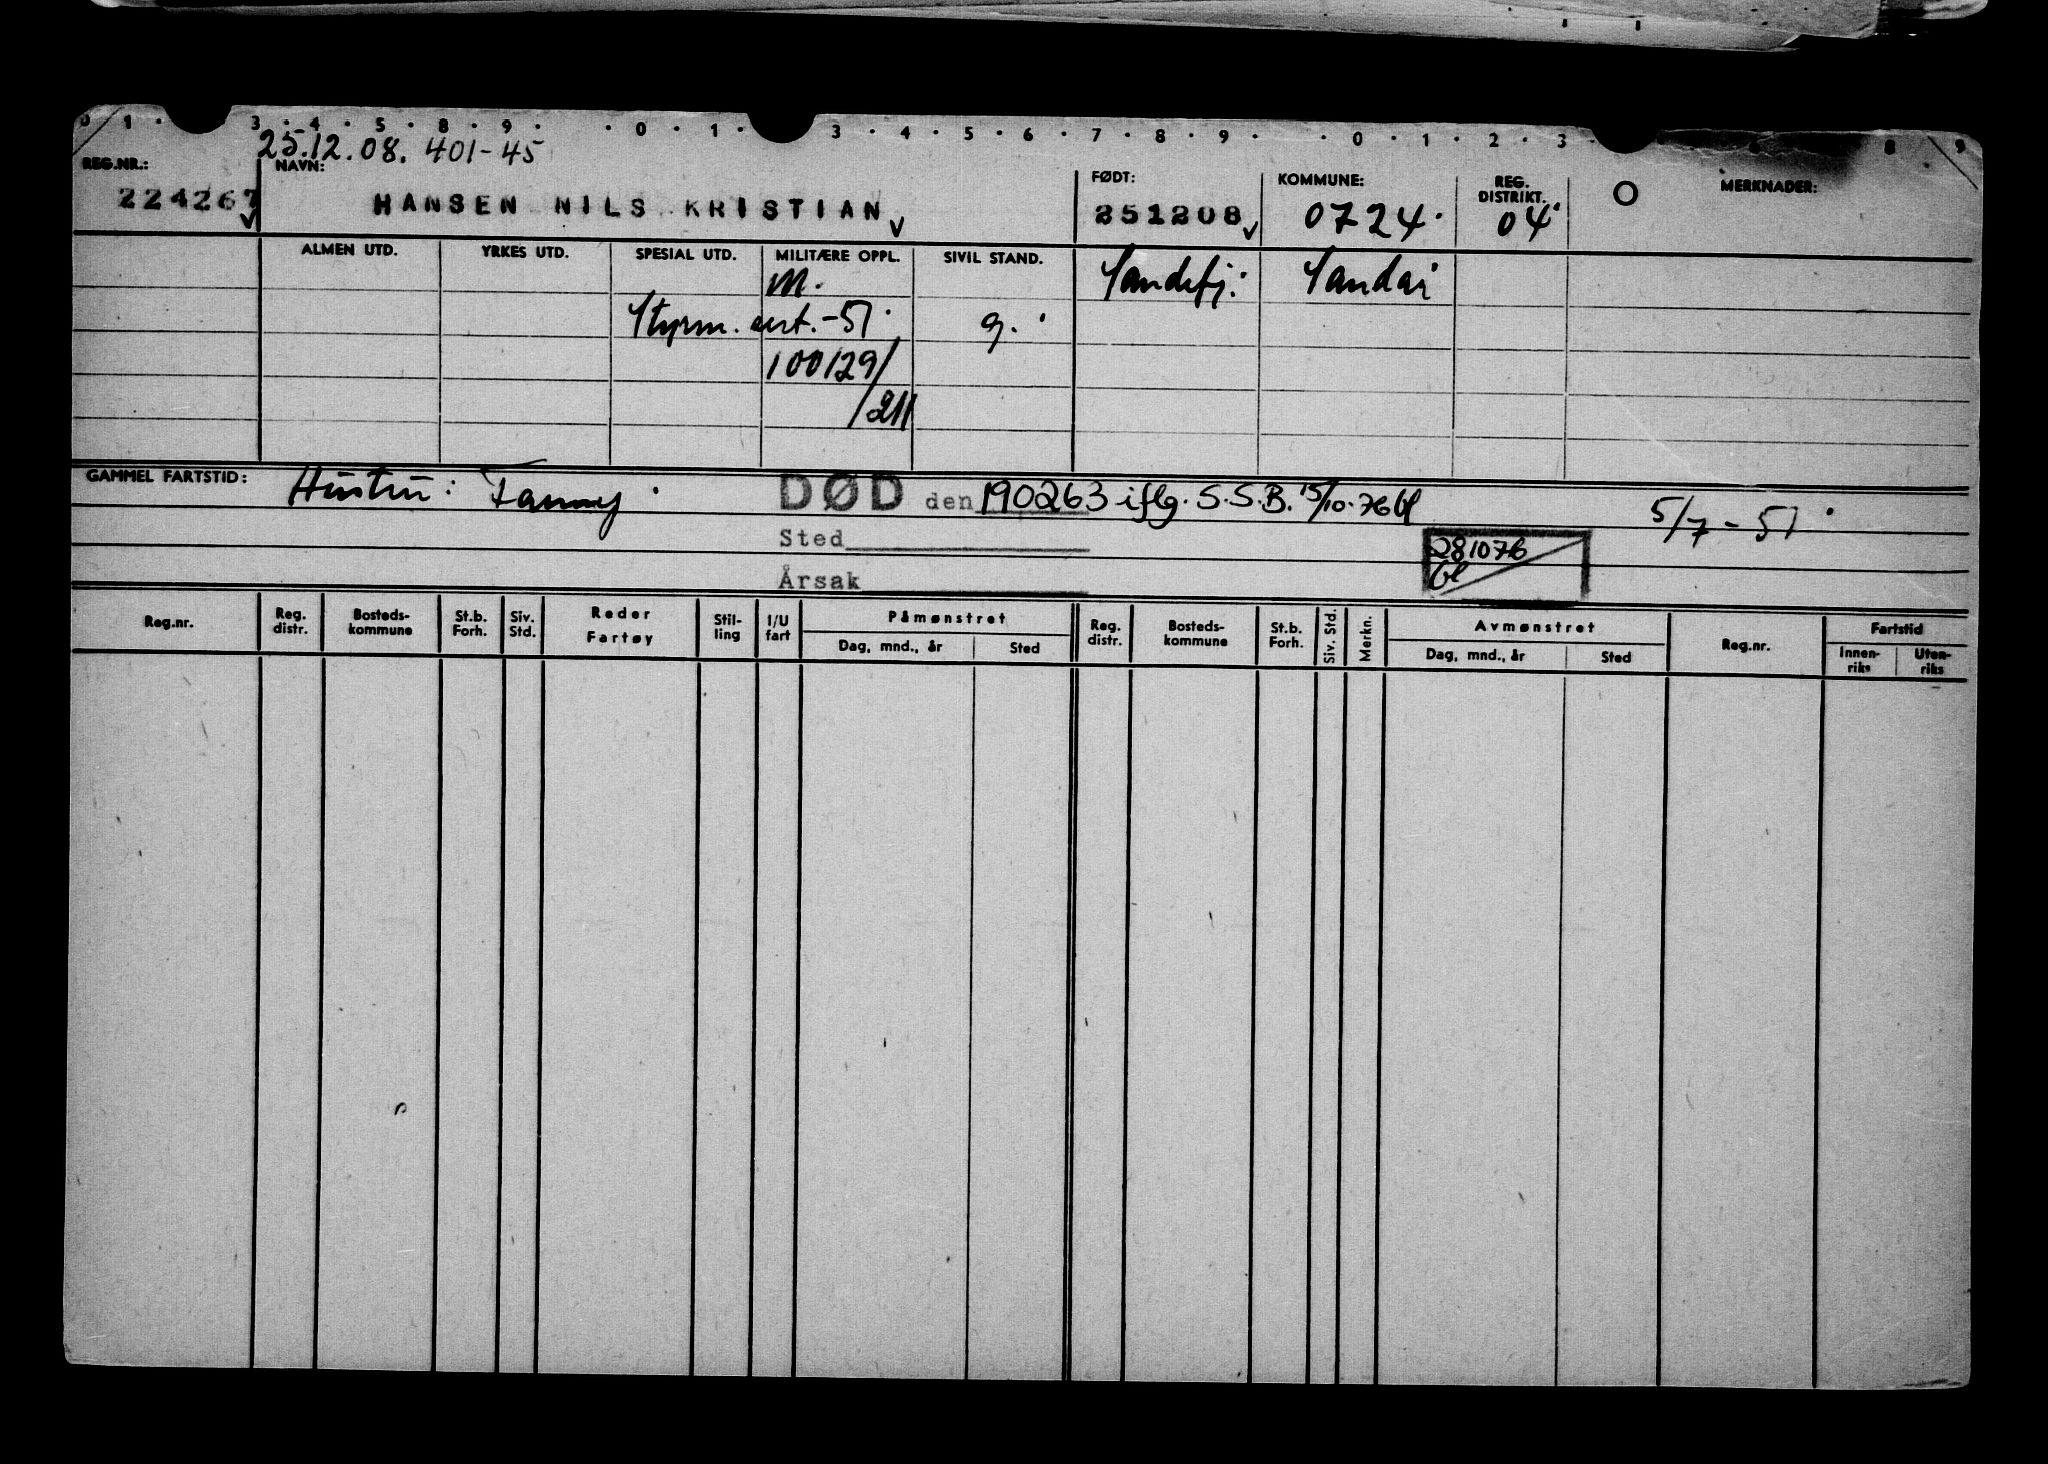 0 1 · 3 · 4 · 5 · 8 · 9 · · 0 · 1 · 3 · 4 · 5 · 6 · 7 · 8 · 9 · · 0 · 1 · 2 · 3 · 8 · 9
25.12.08. 401-45
REG.NR.: NAVN: FØDT: KOMMUNE: REG. DISTRIKT. MERKNADER:
224267 HANSEN NILS KRISTIAN 251208 0724. 04
ALMEN UTD. YRKES UTD. SPESIAL UTD. MILITÆRE OPPL. SIVIL STAND.
m. Sandefj. Sandar
Styrm. sert. -51. g.
100129/
/211
GAMMEL FARTSTID: Hustru: Fanny. DØD den 190263 iflg. S.S.B. 15/10-76 bl 5/7-51
Sted 281076
Årsak bl
Reg.nr. Reg. distr. Bosteds-kommune St.b. Forh. Siv. Std. Reder Fartøy Stil-ling I/U fart Påmønstret Reg. distr. Bosteds-kommune St.b. Forh. Siv. Std. Merkn. Avmønstret Reg.nr. Fartstid
Dag, mnd., år Sted Dag, mnd., år Sted Innen-riks Uten-riks